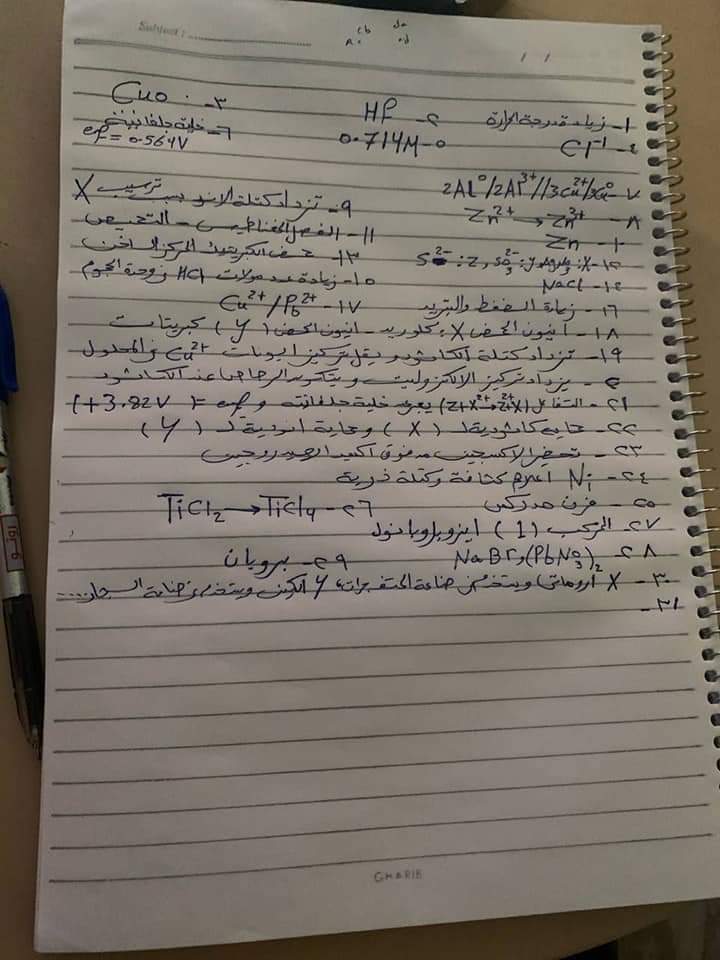 Subject :
١- زيادة درجة الحرارة ٢- HF ٣- CuO
٤- Cl⁻¹ ٥- 0.714M ٦- خلية جلفانية emf = 0.564V
٧- 2Al⁰/2Al³⁺//3Cu²⁺/3Cu⁰
٨- Zn²⁺ → Zn³⁺ ٩- تزداد كتلة الانود بسبب ترسيب X
١٠- Zn ١١- الفصل المغناطيسي - التحميص
١٢- X: , Y: SO₃²⁻ , Z: S²⁻ ١٣- حمض الكبريتيك المركز الساخن
١٤- NaCl ١٥- زيادة عدد مولات HCl في وحدة الحجوم
١٦- زيادة الضغط والتبريد ١٧- Cu²⁺/Pb²⁺
١٨- أنيون الحمض X: كلوريد - انيون الحمض (Y) كبريتات
١٩- تزداد كتلة الكاثود و يقل تركيز ايونات Cu²⁺ في المحلول
٢٠- يزداد تركيز الالكتروليت و يتكون الرصاص عند الكاثود
٢١- التفاعل (Z+X²⁺→Z²⁺+X) يعبر عن خلية جلفانية و emf = (+3.82V)
٢٢- حماية كاثودية لـ (X) وحماية انودية لـ (Y)
٢٣- تحضير الاكسجين من فوق اكسيد الهيدروجين
٢٤- Ni اكبرهم كثافة وكتلة ذرية
٢٥- فرن مدركس ٢٦- TiCl₂ → TiCl₄
٢٧- المركب (1) ايزوبروبانول
٢٨- NaBr , (PbNO₃)₂ ٢٩- بروبان
٣٠- X اروماتي ويستخدم في صناعة المتفجرات، Y الكين ويستخدم في صناعة السجاد....
٣١-
GHARIB